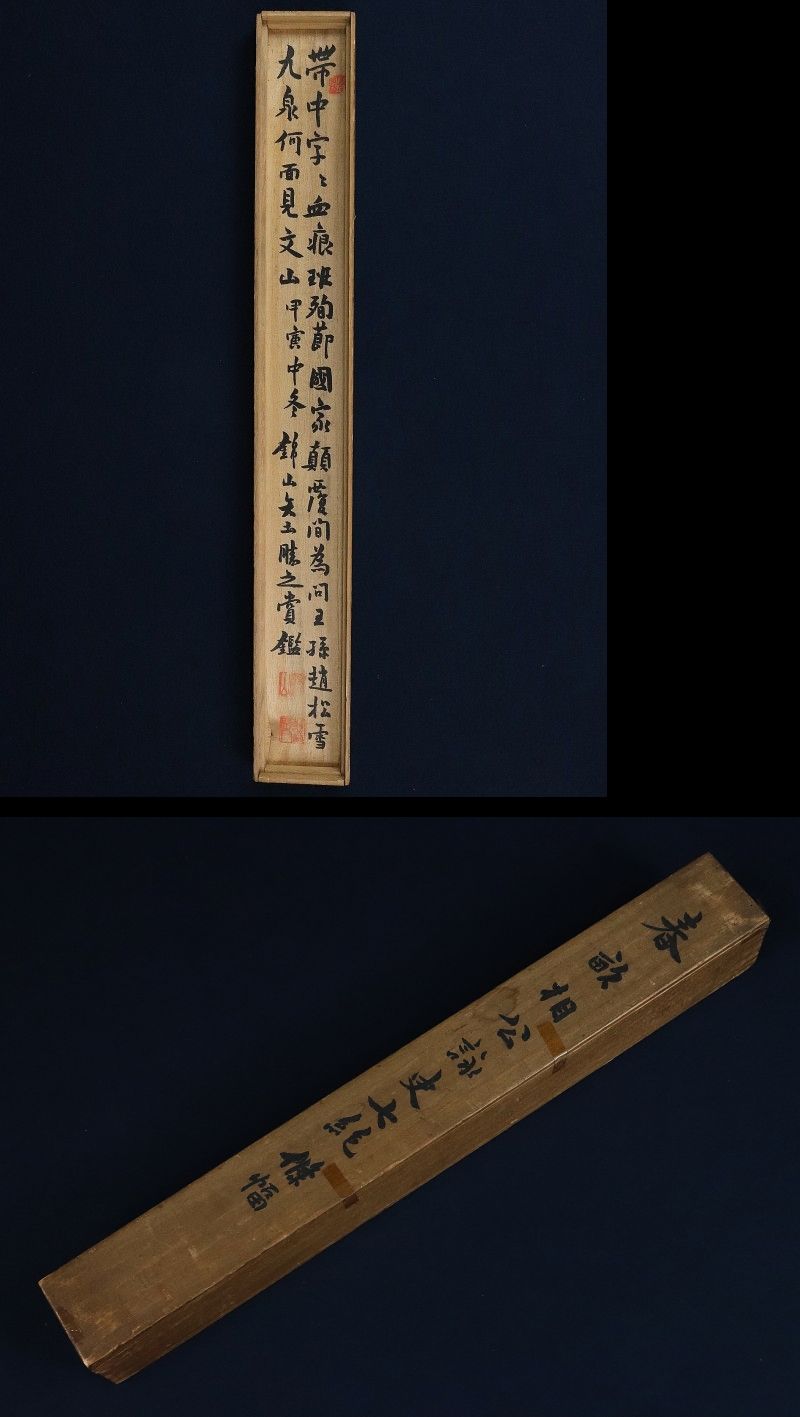 帶中字〻血痕班殉節國家顛覆間為問王孫趙松雪
九泉何面見文山 甲寅中冬 錦山矢土勝之賞鑑
春畝相公詠史七絶條幅